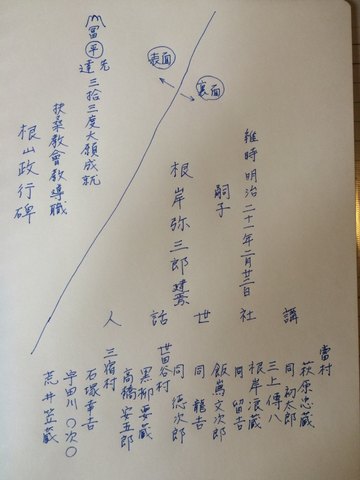 表面
富平先達三拾三度大願成就
扶桑教會教導職
根山政行碑
裏面
維時明治二十一年二月廿二日
嗣子
根岸弥三郎建焉
講社世話人
當村
萩原忠蔵
同 初太郎
三上傳八
根岸浪蔵
同 留吉
飯嶌文次郎
同 龍吉
同 徳次郎
世田谷村
黒柳要蔵
高橋安五郎
三宿村
石塚幸吉
宇田川〇次〇
荒井笠蔵